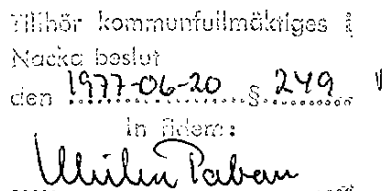 Tillhör kommunfullmäktiges i
Nacka beslut
den 1977-06-20 § 249
In fidem: